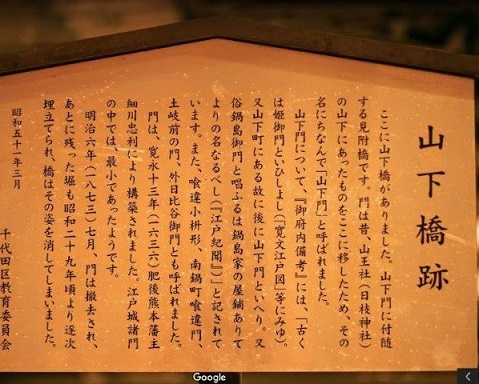 山下橋跡
ここに山下橋がありました。山下門に付随
する見附橋です。門は昔、山王社（日枝神社）
の山下にあったものをここに移したため、その
名にちなんで「山下門」と呼ばれました。
山下門について、『御府内備考』には、「古く
は姫御門といひしよし（「寛文江戸図」等にみゆ）。
又山下町にある故に後に山下門といへり。又
俗鍋島御門と唱ふるは鍋島家の屋鋪ありて
よりの名なるべし（「江戸紀聞」）」と記されて
います。また、喰違小枡形、南鍋町喰違門、
土岐前の門、外日比谷御門とも呼ばれました。
門は、寛永十三年（一六三六）肥後熊本藩主
細川忠利により構築されました。江戸城諸門
の中では、最小であったようです。
明治六年（一八七三）七月、門は撤去され、
あとに残った堀も昭和二十九年頃より逐次
埋立てられ、橋はその姿を消してしまいました。
昭和五十一年三月
千代田区教育委員会
Google